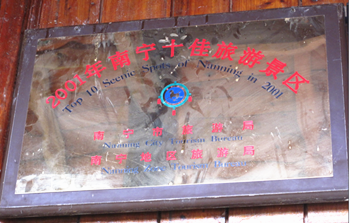 2001年南宁十佳旅游景区
Top 10 Scenic Spots of Nanning in 2001
南宁市旅游局
Nanning City Tourism Bureau
南宁地区旅游局
Nanning Tourism Bureau